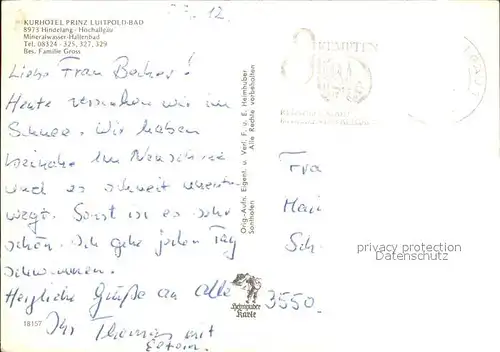 27.12.
KURHOTEL PRINZ LUITPOLD-BAD
8973 Hindelang - Hochallgäu
Mineralwasser-Hallenbad
Tel. 08324 - 325, 327, 329
Bes. Familie Gross
Liebe Frau Becker!
Heute versinken wir im
Schnee. Wir haben
beinahe 1m Neuschnee
und es schneit unent-
wegt. Sonst ist es sehr
schön. Ich gehe jeden Tag
schwimmen.
Herzliche Grüße an alle
Ihr Thomas mit
Eltern.
18157
Orig.-Aufn. Eigent. u. Verl. F. u. E. Heimhuber
Sonthofen
Alle Rechte vorbehalten
Heimhuber
Karte
KEMPTEN
Fra
Sch
3550.
privacy protection
privacy protection